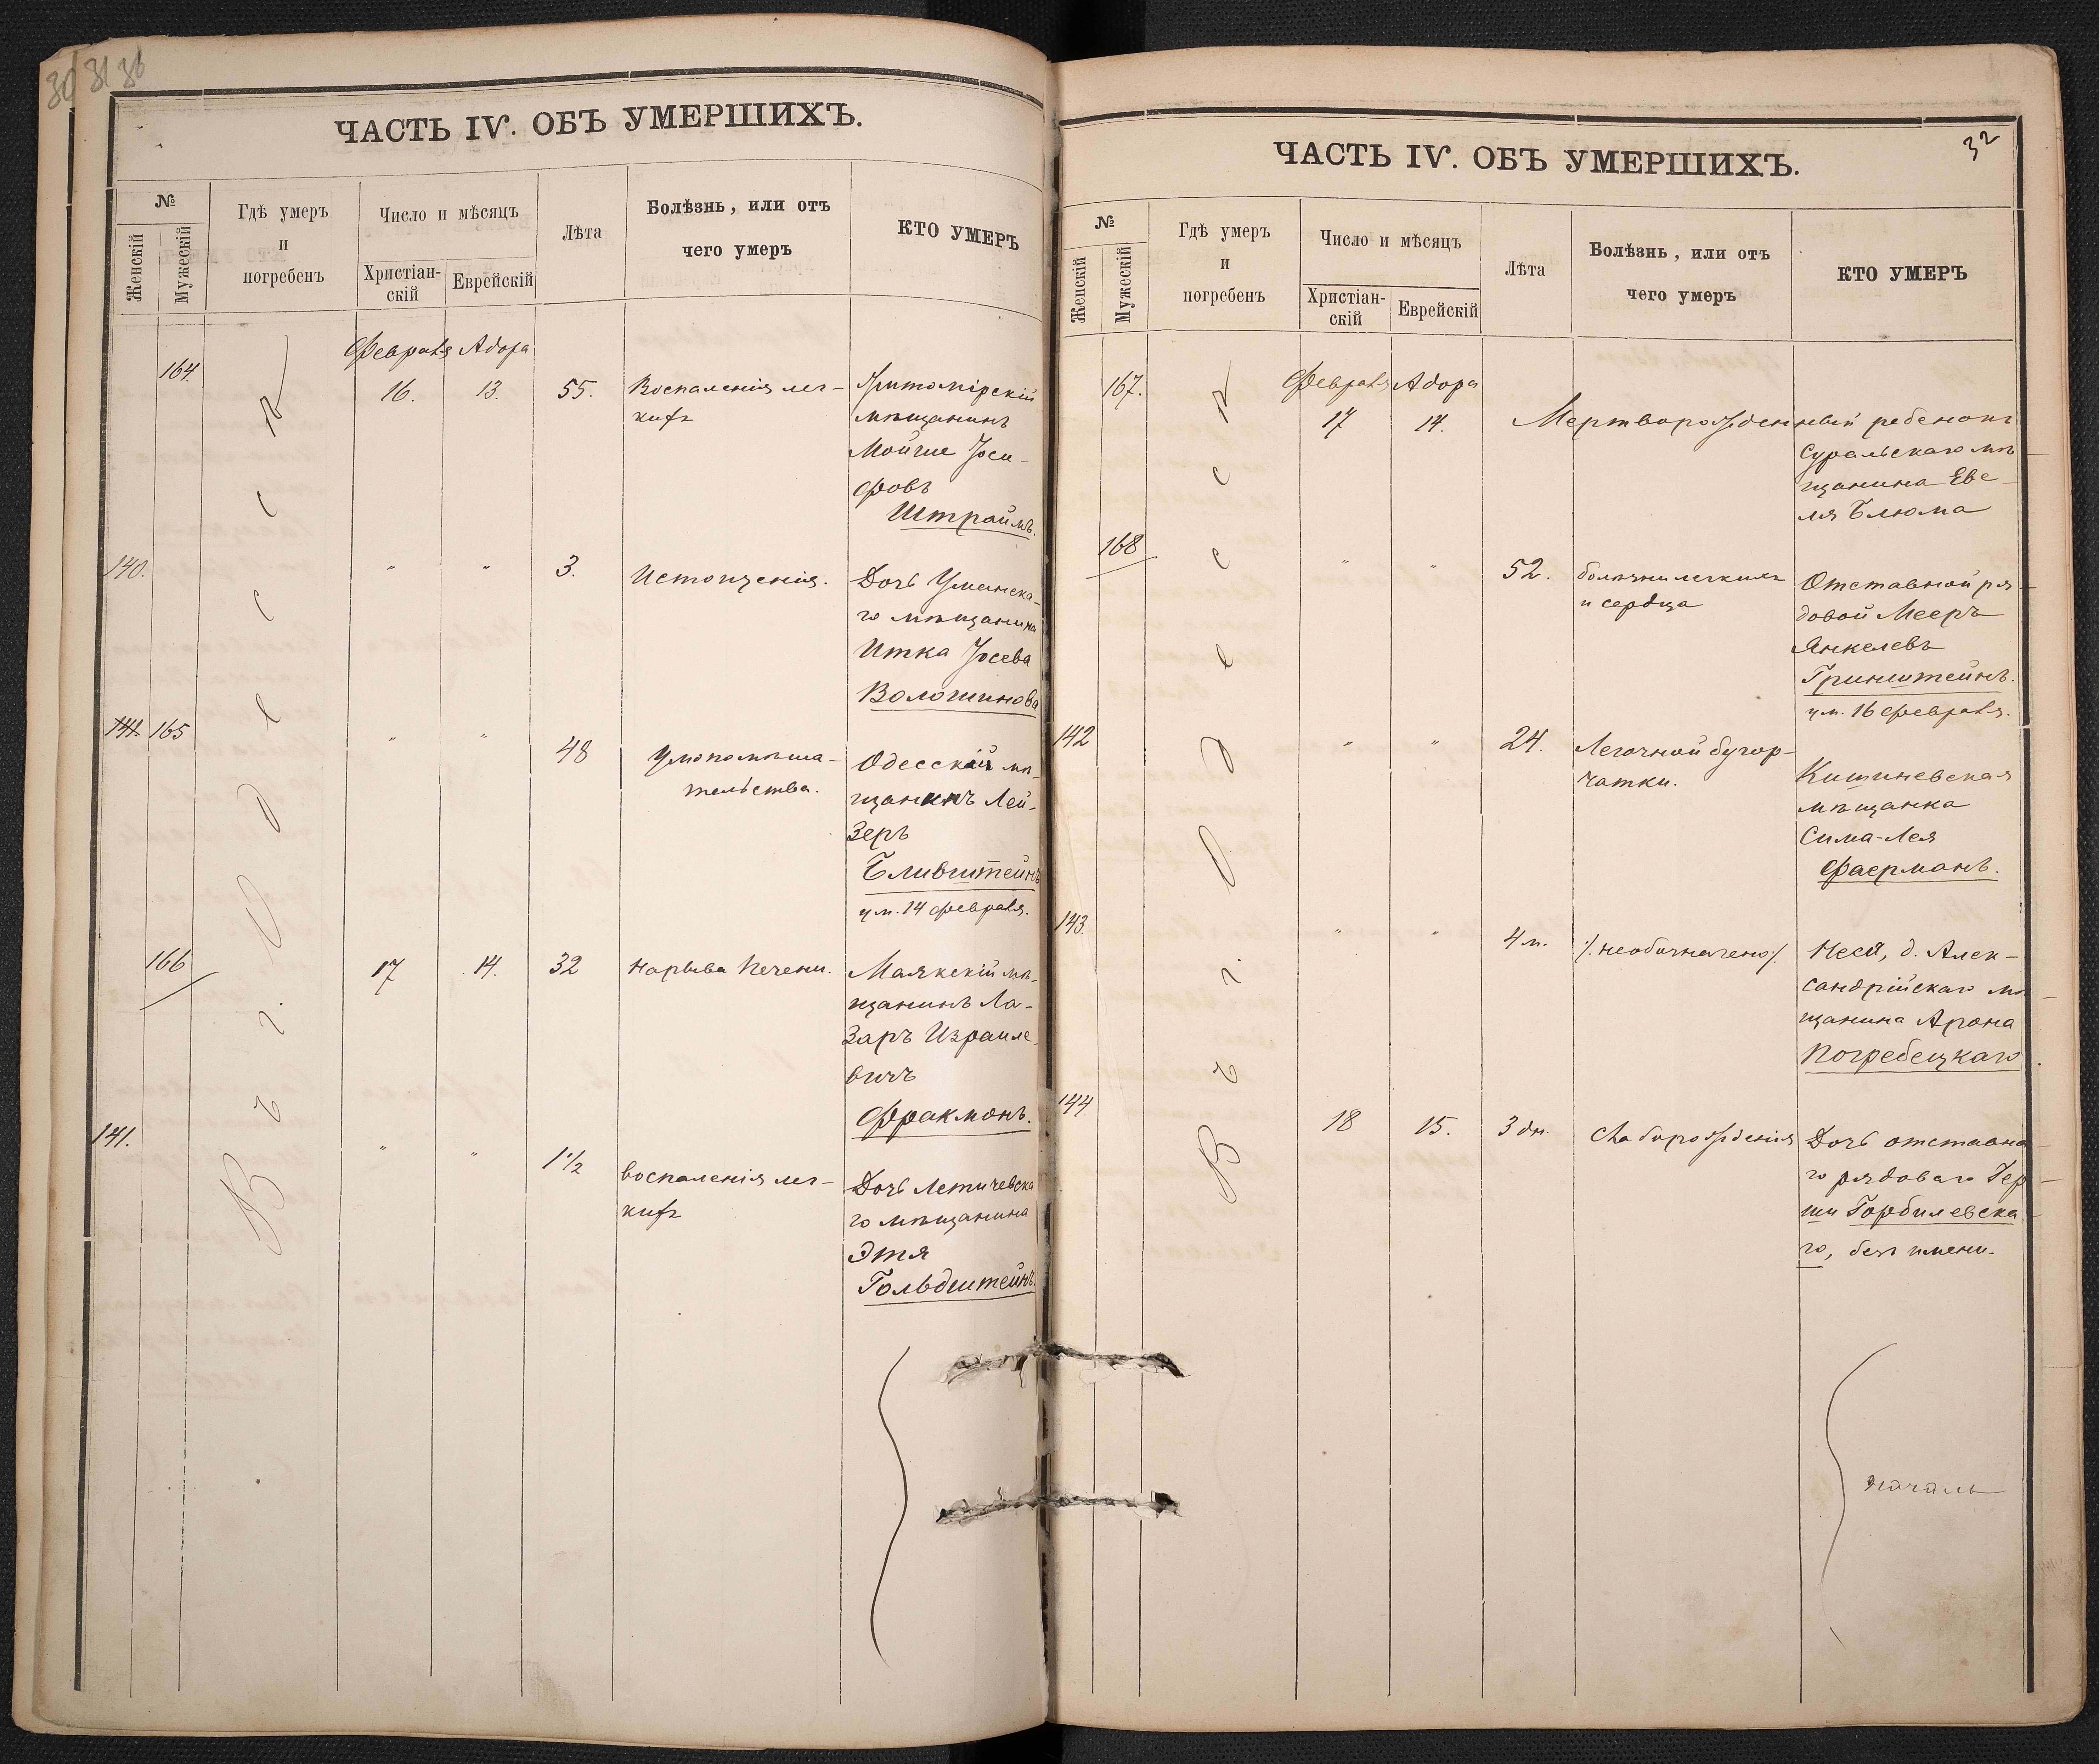 30 31 36
ЧАСТЬ IV. ОБЪ УМЕРШИХЪ.
№
Женскій
Мужескій
Гдѣ умеръ
и
погребенъ
Число и мѣсяцъ
Христіан-
скій
Еврейскій
Лѣта
Болѣзнь, или отъ
чего умеръ
КТО УМЕРЪ
Въ г. Одессѣ
Февраля Адора
164. 16. 13. 55. Воспаленія лег-
кихъ
Житомірскій
мѣщанинъ
Мойше Іоси-
фовъ
Штраймъ.
140. " " 3. Истощенія. Дочь Уманска-
го мѣщанина
Итка Іосева
Волошинова
141. 165 " " 48 Умопомѣша-
тельства.
Одесскій мѣ-
щанинъ Лей-
зеръ
Бливштейнъ
ум. 14 февраля.
166 17 14. 32 Нарыва печени. Маякскій мѣ-
щанинъ Ла-
заръ Израиле-
вичъ
Фракмонъ.
141. " " 1 1/2 воспаленія лег-
кихъ
Дочь Летичевска
го мѣщанина
Этя
Гольдштейнъ.
32
ЧАСТЬ IV. ОБЪ УМЕРШИХЪ.
№
Женскій
Мужескій
Гдѣ умеръ
и
погребенъ
Число и мѣсяцъ
Христіан-
скій
Еврейскій
Лѣта
Болѣзнь, или отъ
чего умеръ
КТО УМЕРЪ
Въ г. Одессѣ
Февраля Адора
167. 17 14. Мертворожденный ребенокъ
Суральскаго мѣ-
щанина Еве-
ля Блюма
168 " " 52. болѣзни легкихъ
и сердца
Отставной ря-
довой Мееръ
Янкелевъ
Гринштейнъ.
ум. 16 февраля.
142 " " 24. Легочной бугор-
чатки.
Кишиневская
мѣщанка
Сима-Лея
Фаерманъ.
143. " " 4 м. /.необозначено/. Неси, д. Алек-
сандрійскаго мѣ-
щанина Арона
Погребецкаго.
144 18 15. 3 дн. Слаборожденія Дочь отставна-
го рядоваго Гер-
ши Горбилевска-
го, безъ имени.